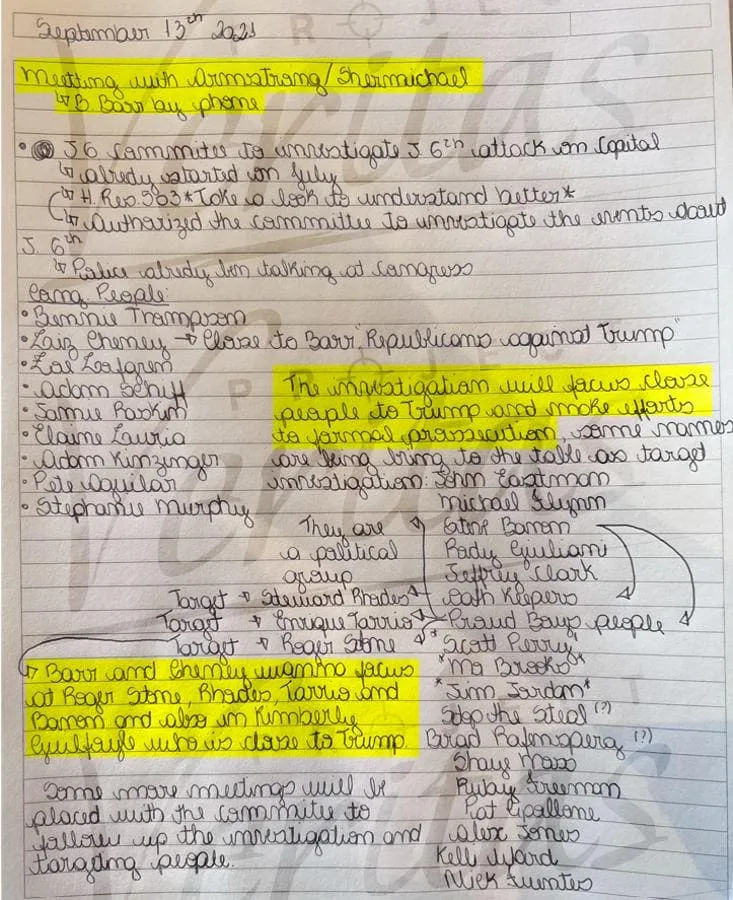 September 13th 2021
Meetting with Armstrong/Shermichael
↳ B Barr by phone
• J6 Committe to investigate J. 6th attack on Capital
↳ alredy started on July
↳ H. Res. 503 *Take a look to understand better*
↳ Authorized the committe to investigate the events about
J. 6th
↳ Police alredy ben talking at Congress
Cong People:
• Bennie Thompson
• Laiz Cheney → Close to Barr "Republicans against Trump"
• Zoe Lofgren
• Adam Schiff
• Jamie Raskin
• Elaine Lauria
• Adam Kinzinger
• Pete Aguilar
• Stephanie Murphy
The investigation will focus close
people to Trump and make efforts
to formal prossecution, some names
are being bring to the table as target
investigation: John Eastman
Michael Flynn
Stine Bannon
Rudy Giuliani
Jeffrey Clark
Oath Keepers
Proud Boys people
*Scott Perry*
*Mo Brooks*
*Jim Jordan*
Stop the Steal (?)
Brad Rafensperg (?)
Shaye Moss
Rubay Freeman
Pat Cipallone
Alex Jones
Kelli Ward
Nick Fuentes
They are
a political
group
Target → Steward Rhodes
Target → Enrique Tarrio
Target → Roger Stone
↳ Barr and Cheney focus
at Roger Stone, Rhodes, Tarrio and
Bannon and also in Kimberly
Guilfoyle who is close to Trump
Some more meetings will be
placed with the committe to
follow up the investigation and
targeting people.
PROJECT
Veritas
PROJECT
Veritas
Veritas